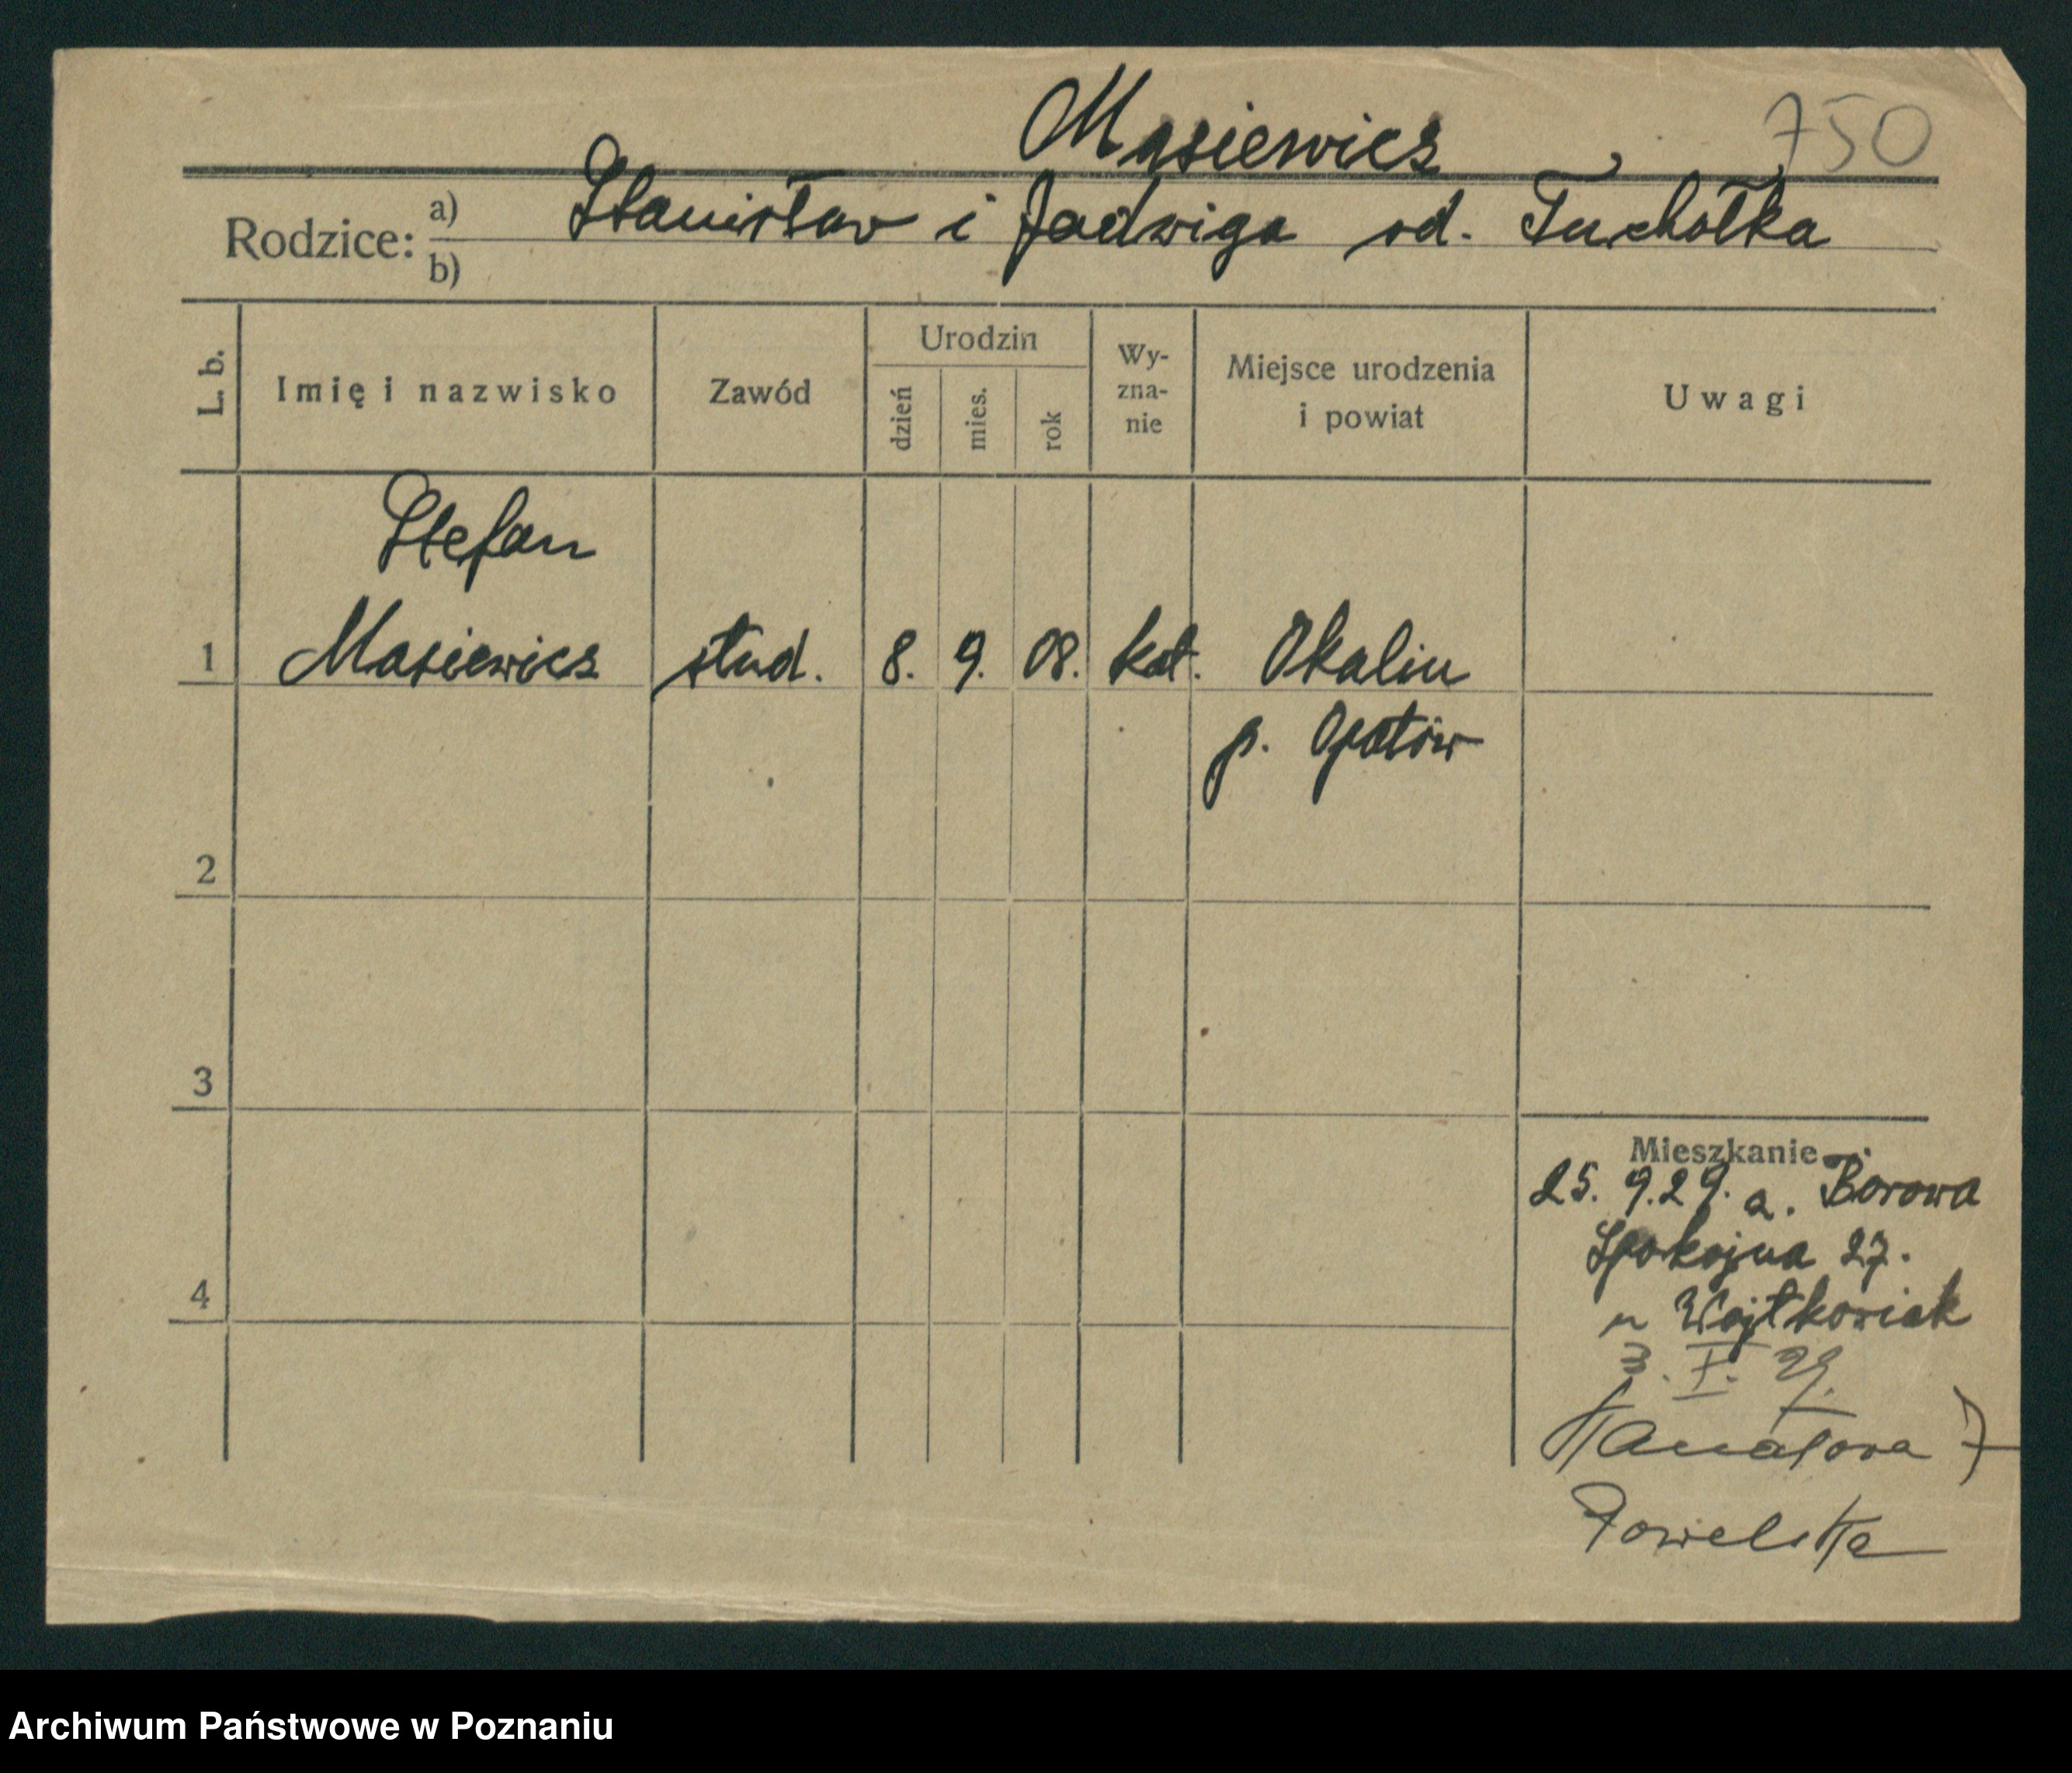 Masiewicz 750
Rodzice: a) Stanisław i Jadwiga od. Tuchołka
b)
L. b. Imię i nazwisko Zawód Urodzin dzień mies. rok Wy-zna-nie Miejsce urodzenia i powiat Uwagi
Stefan
1 Masiewicz stud. 8. 9. 08. kat. Okalin
p. Opatów
2
3
Mieszkanie
25. 9.29. a. Borowa
Spokojna 27.
4
u Wojtkowiak
3. I. 29.
7
Archiwum Państwowe w Poznaniu